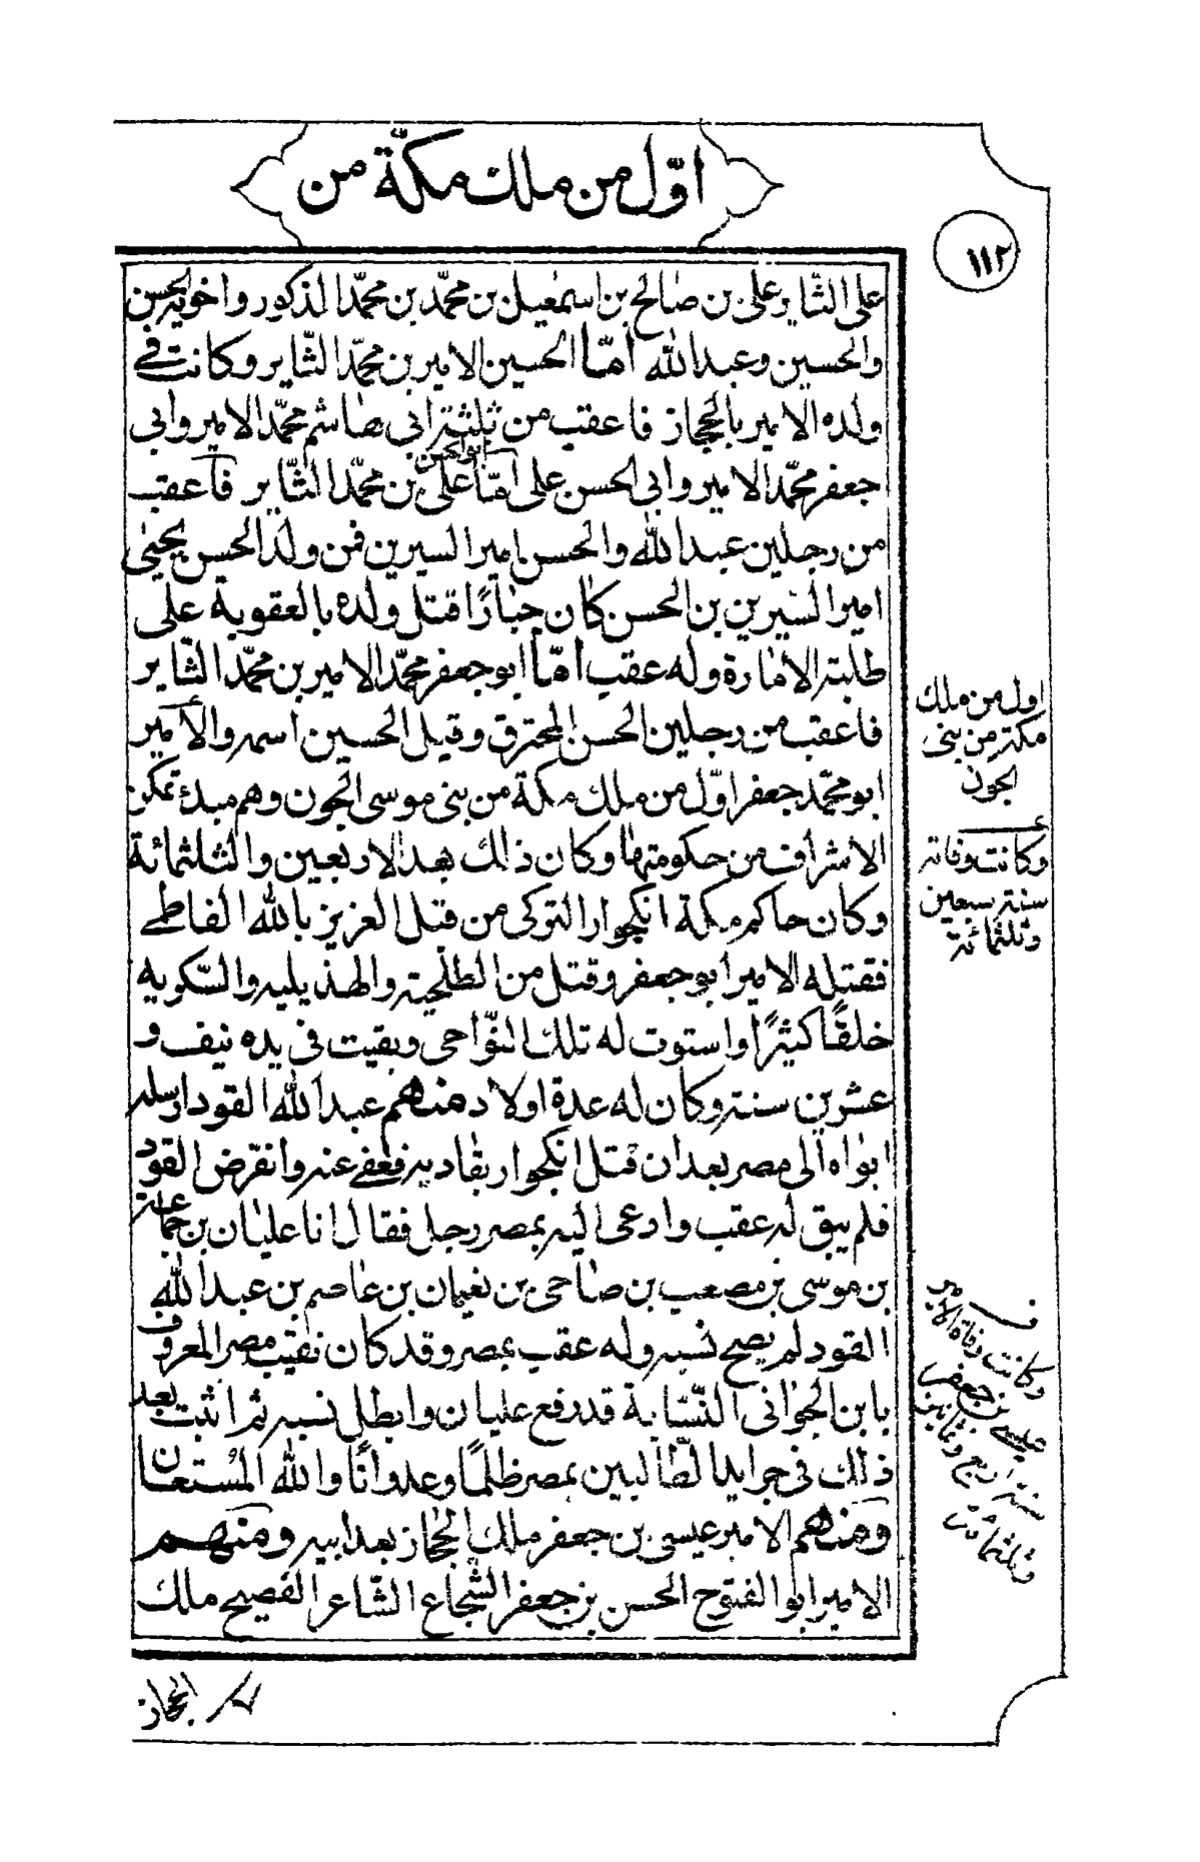 اوّل من ملك مكّة من
١١٢
على الثّاير على بن صالح بن اسمعيل بن محمّد بن محمّد المذكور واخويه الحسن
والحسين وعبدالله امّا الحسين الامير بن محمّد الثّاير وكانت في
ولده الامير بالحجاز فاعقب من ثلثة ابي هاشم محمّد الامير وابي
جعفر محمّد الامير وابي الحسن على امّا ابوالحسن على بن محمّد الثّاير فاعقب
من رجلين عبدالله والحسن امير السيرين فمن ولد الحسن يحيى
امير السّيرين بن الحسن كان جبارًا قتل ولده بالعقوبة على
طلبته الامارة وله عقب امّا ابوجعفر محمّد الامير بن محمّد الثّاير
فاعقب من رجلين الحسن المحترق وقيل الحسين اسمه والأمير
ابومحمّد جعفر اوّل من ملك مكة من بنى موسى الجون وهم مبدء تمكن
الاشراف من حكومتها وكان ذلك بعد الاربعين والثلثمائة
وكان حاكم مكة انكجوار التركى من قبل العزيز بالله الفاطمي
فقتله الامير ابوجعفر وقتل من الطلحية والهذيليه والسّكويه
خلقًا كثيرًا واستوت له تلك النّواحى وبقيت فى يده نيف و
عشرين سنة وكان له عدة اولاد منهم عبدالله القود ارسله
ابواه الى مصر بعد ان قتل انكجوار يقاد به فعفى عنه وانقرض القود
فلم يبق له عقب وادعى اليه بمصر رجل فقال انا عليان بن جماعة
بن موسى بن مصعب بن صاحى بن نعيمان بن عاصم بن عبدالله
القود لم يصح نسبه وله عقب بمصر وقد كان نقيب مصر المعروف
بابن الجوانى النّسّابة قد رفع عليان وابطل نسبه ثم اثبت بعد
ذلك فى جرايد الطّالبيين بمصر ظلمًا وعدوانًا والله المستعان
ومنهم الامير عيسى بن جعفر ملك الحجاز بعد ابيه ومنهم
الامير ابوالفتوح الحسن بن جعفر الشّجاع الشّاعر الفصيح ملك
الحجاز
اول من ملك
مكة من بنى
الجون
وكانت وفاته
سنة سبعين
وثلثمائة
وكانت وفاة الامير
عيسى بن جعفر
سنة اربع وثمانين
وثلثمائة